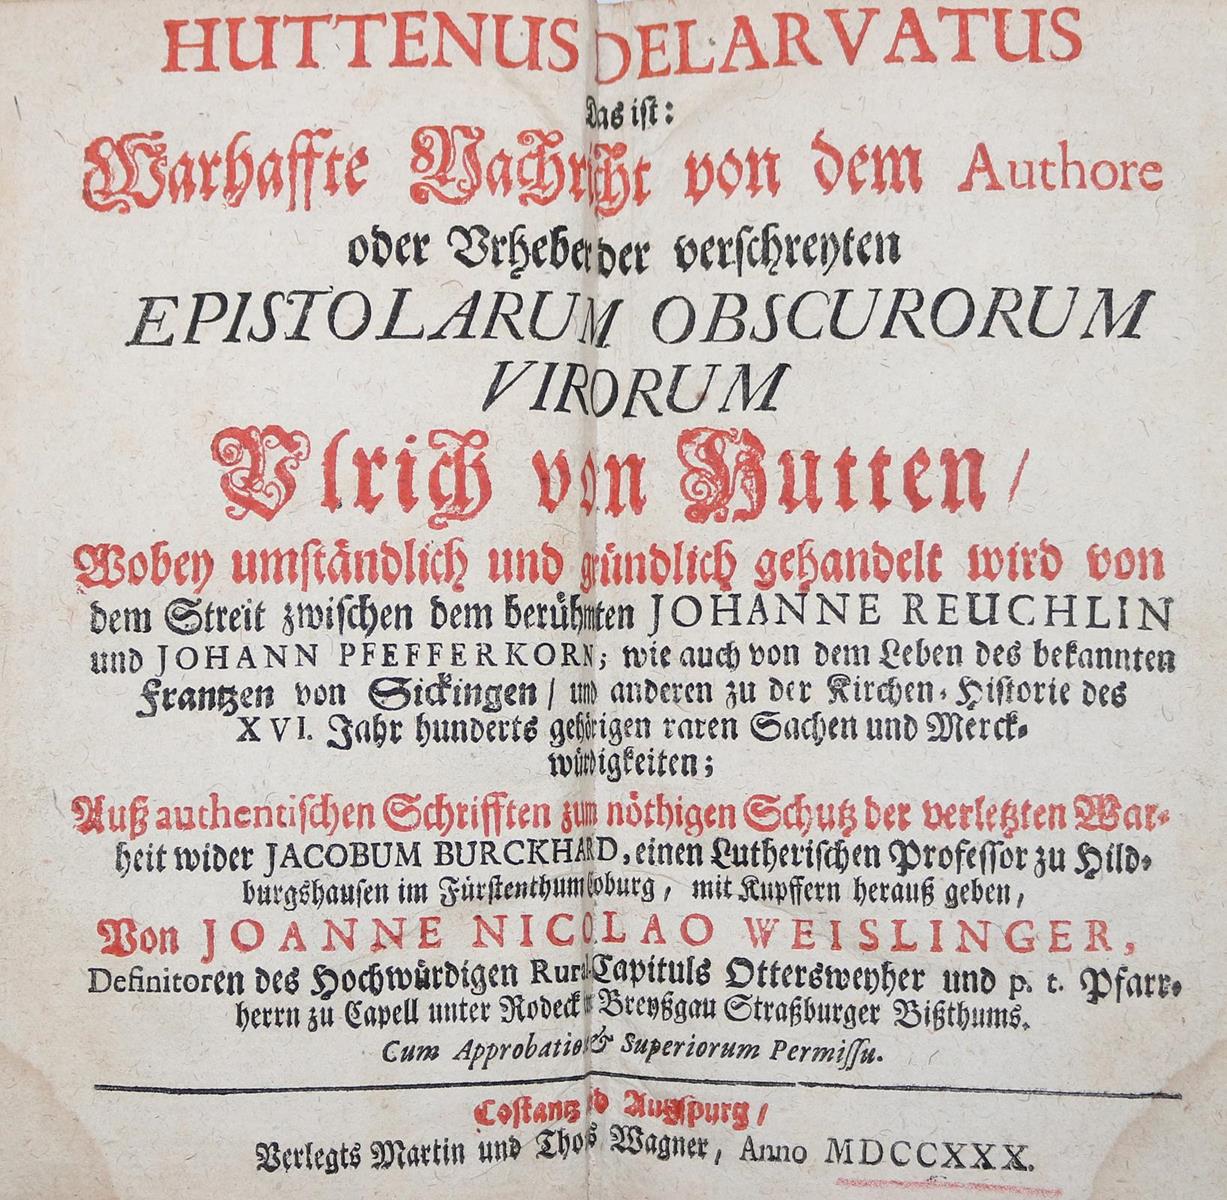 HUTTENUS DELARVATUS
Das ist:
Warhaffte Nachricht von dem Authore
oder Vrheber der verschreyten
EPISTOLARUM OBSCURORUM
VIRORUM
Vlrich von Hutten /
Wobey umständlich und gründlich gehandelt wird von
dem Streit zwischen dem berühmten JOHANNE REUCHLIN
und JOHANN PFEFFERKORN; wie auch von dem Leben des bekannten
Frantzen von Sickingen / und anderen zu der Kirchen-Historie des
XVI. Jahr hunderts gehörigen raren Sachen und Merck-
würdigkeiten;
Auß authentischen Schrifften zum nöthigen Schutz der verletzten War-
heit wider JACOBUM BURCKHARD, einen Lutherischen Professor zu Hild-
burgshausen im Fürstenthum Coburg, mit Kupffern herauß geben,
Von JOANNE NICOLAO WEISLINGER,
Definitoren des Hochwürdigen Rural-Capituls Ottersweyher und p. t. Pfarr-
herrn zu Capell unter Rodeck Breyßgau Straßburger Bißthums.
Cum Approbatione & Superiorum Permissu.
Costantz und Augspurg /
Verlegts Martin und Thomas Wagner, Anno MDCCXXX.